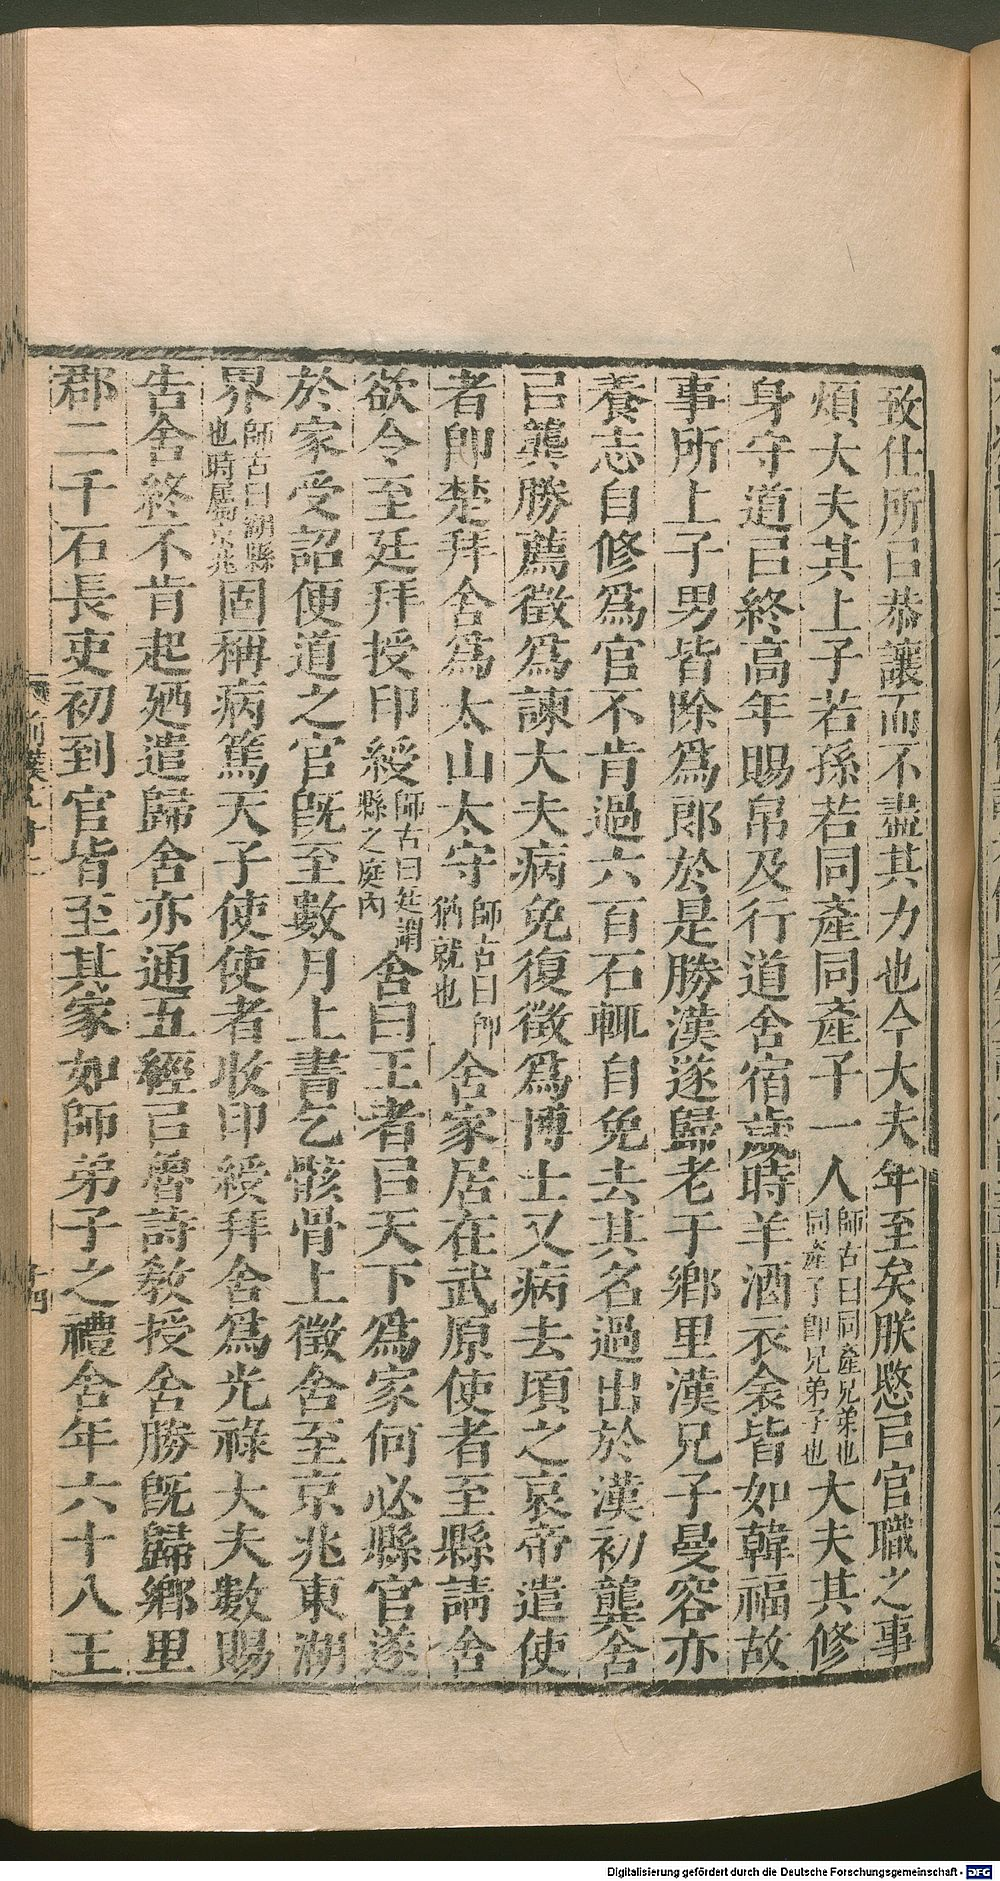 致仕所㠯恭讓而不盡其力也今大夫年至矣朕愍㠯官職之事
煩大夫其上子若孫若同產同產子一人師古曰同產兄弟也同產子即兄弟子也大夫其修
身守道㠯終高年賜帛及行道舍宿歲時羊酒衣衾皆如韓福故
事所上子男皆除爲郎於是勝漢遂歸老于鄉里漢兄子曼容亦
養志自修爲官不肯過六百石輒自免去其名過出於漢初龔舍
㠯龔勝薦徵爲諫大夫病免復徵爲博士又病去頃之哀帝遣使
者即楚拜舍爲太山太守師古曰即猶就也舍家居在武原使者至縣請舍
欲令至廷拜授印綬師古曰廷謂縣之庭內舍曰王者㠯天下爲家何必縣官遂
於家受詔便道之官旣至數月上書乞骸骨上徵舍至京兆東湖
界師古曰湖縣也時屬京兆固稱病篤天子使使者收印綬拜舍爲光祿大夫數賜
告舍終不肯起廼遣歸舍亦通五經㠯魯詩敎授舍勝旣歸鄉里
郡二千石長吏初到官皆至其家如師弟子之禮舍年六十八王
Digitalisierung gefördert durch die Deutsche Forschungsgemeinschaft - DFG